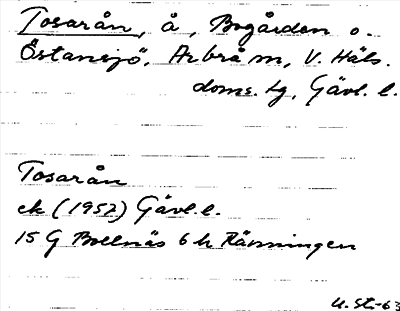 Tosarån, å, Bogården o.
Östansjö, Arbrå sn, V. Häls.
doms. tg, Gävl. l.
Tosarån
ek (1952) Gävl. l.
15 G Bollnäs 6 h
U. St-63